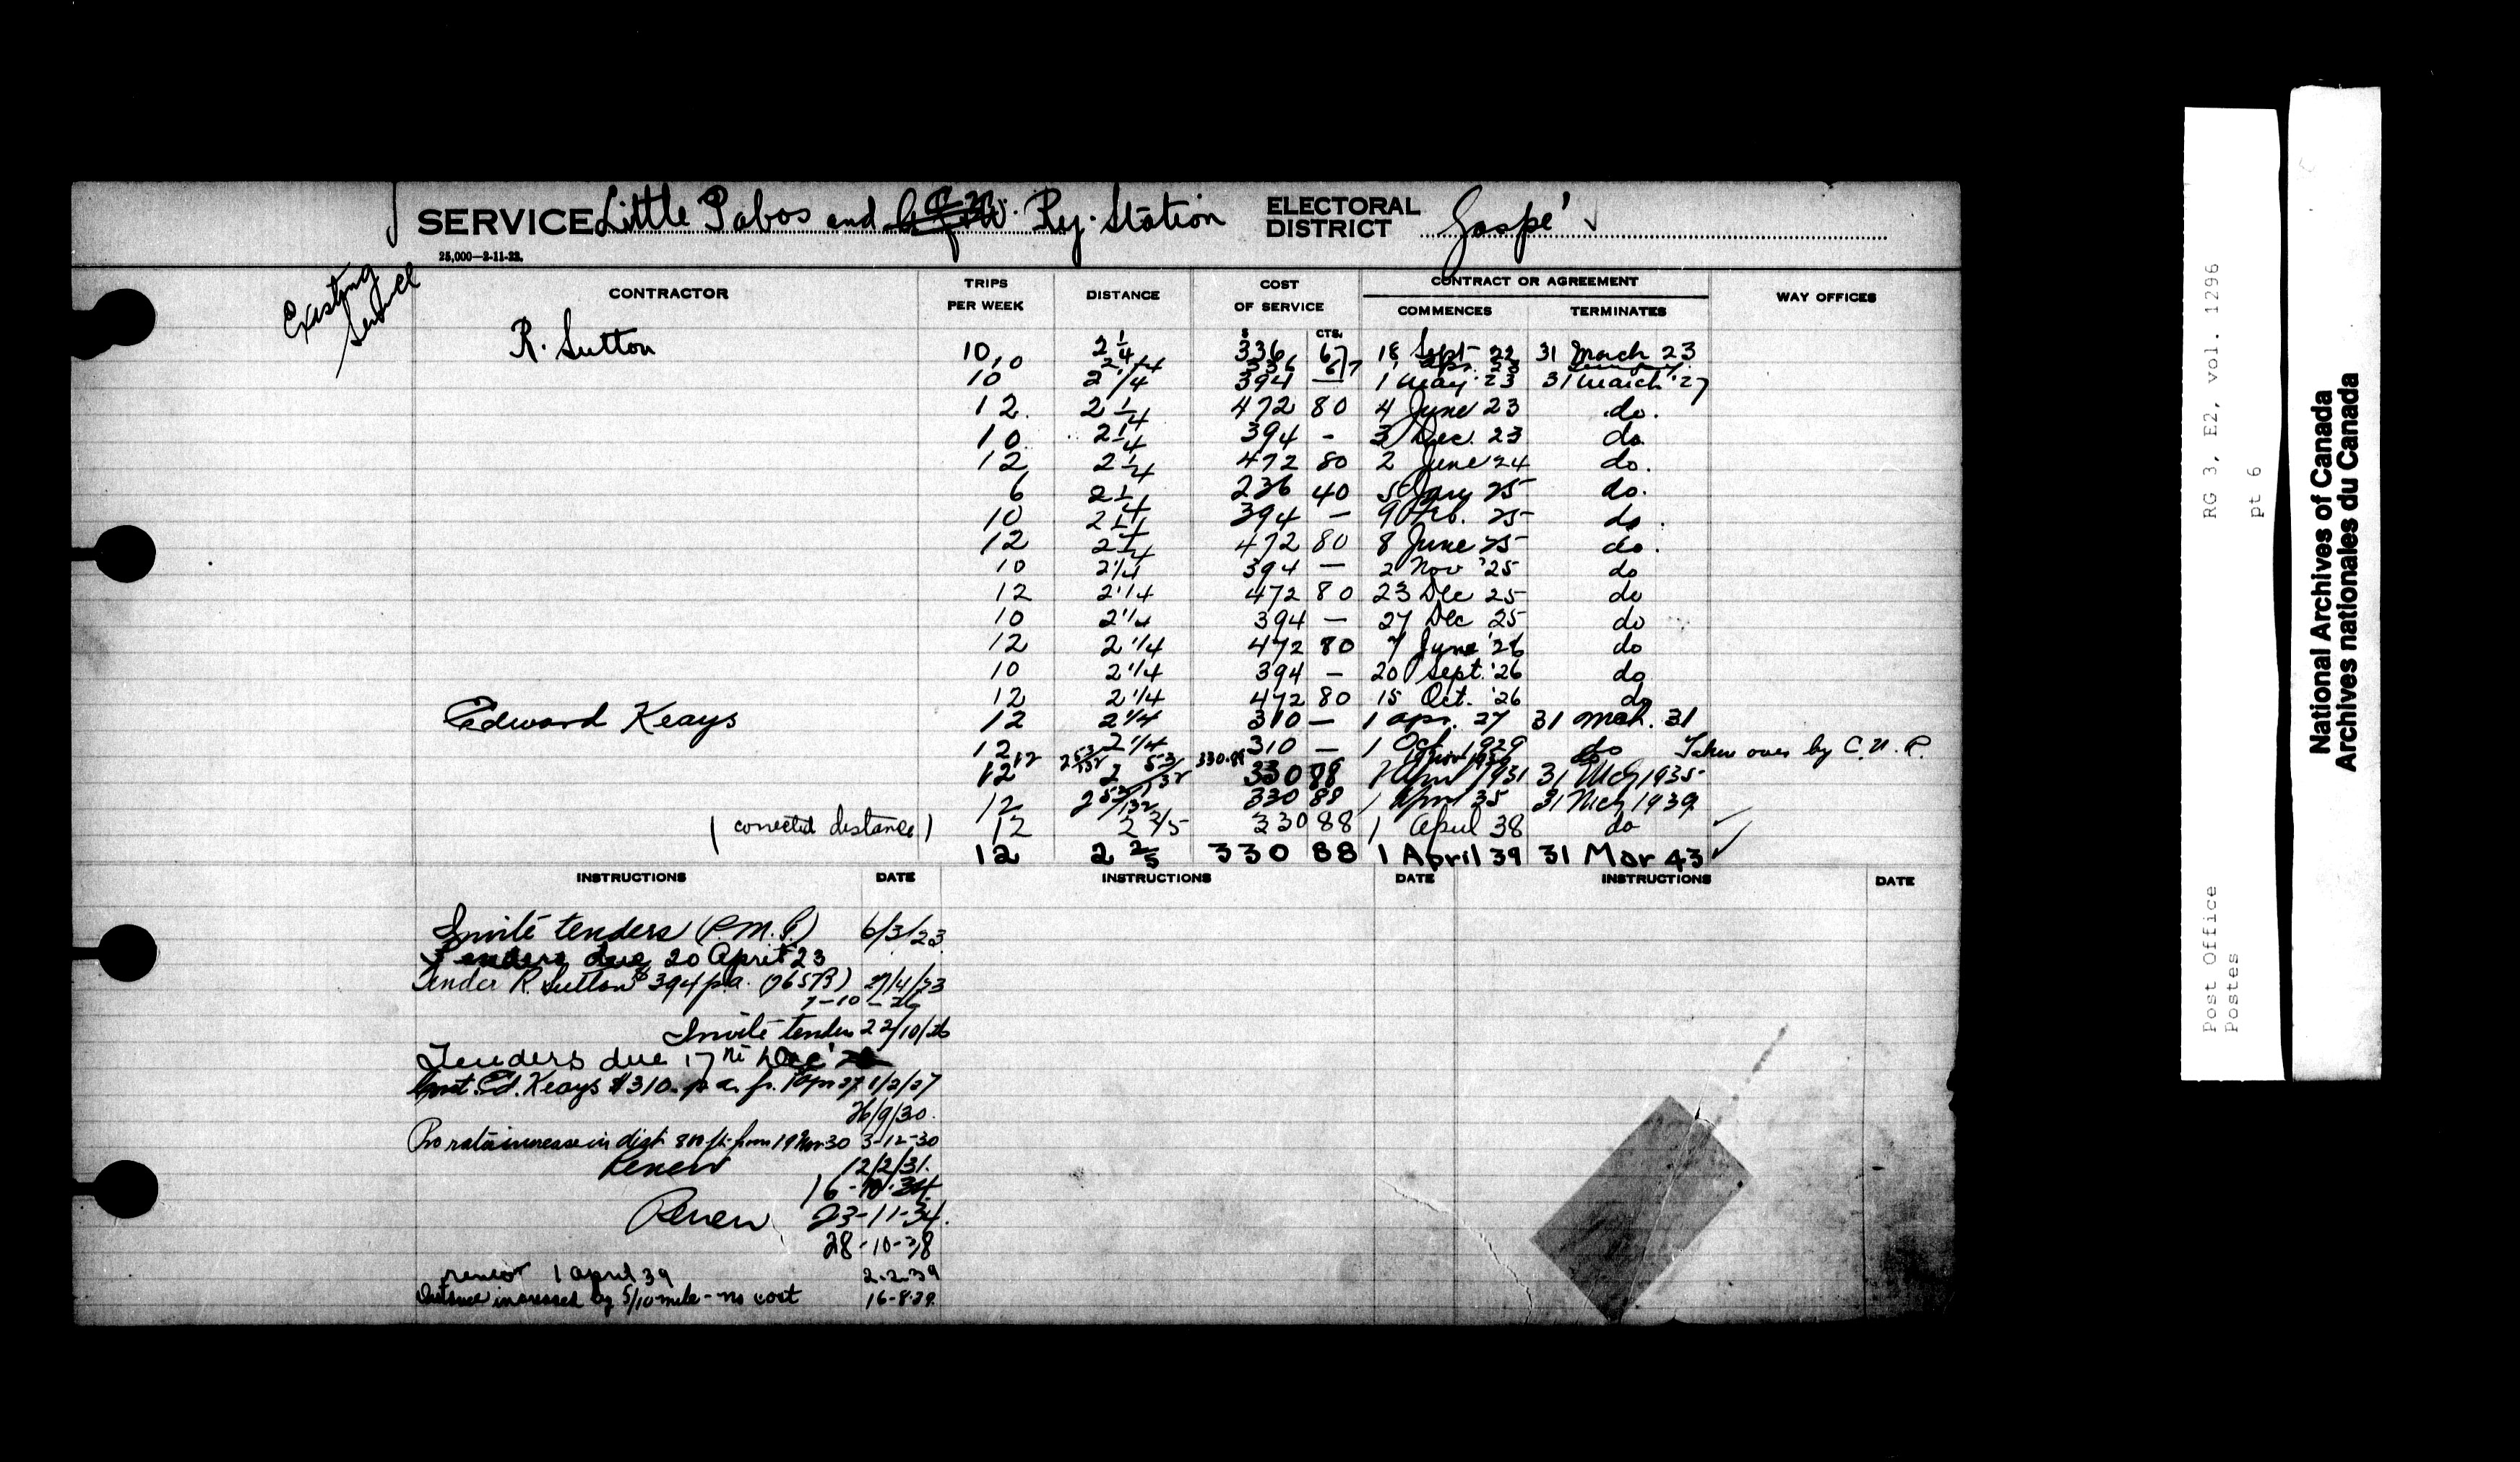 SERVICE Little Pabos and Ry. Station ELECTORAL DISTRICT Gaspé
25,000—2-11-22.
Existing Service
CONTRACTOR TRIPS PER WEEK DISTANCE COST OF SERVICE CONTRACT OR AGREEMENT WAY OFFICES
COMMENCES TERMINATES
$ CTS.
R. Sutton 10 2 1/4 336 67 18 Sept 22 31 March 23
10 2 1/4 336 67 1 Apr. 23
10 2 1/4 394 — 1 May '23 31 March '27
12. 2 1/4 472 80 4 June 23 do.
10 2 1/4 394 - 3 Dec. 23 do.
12 2 1/4 472 80 2 June 24 do.
6 2 1/4 236 40 5 Jany 25 do.
10 2 1/4 394 — 9 Feb. 25 do.
12 2 1/4 472 80 8 June 25 do.
10 2 1/4 394 — 2 Nov '25 do
12 2 1/4 472 80 23 Dec 25 do
10 2 1/4 394 — 27 Dec '25 do
12 2 1/4 472 80 7 June '26 do
10 2 1/4 394 — 20 Sept. '26 do
12 2 1/4 472 80 15 Oct. '26 do
Edward Keays 12 2 1/4 310 — 1 Apr. 27 31 Mch. 31
12 2 1/4 310 — 1 Oct 1929 do Taken over by C.N.R.
12 2 53/132 330.88 19 Nov 1930
12 2 53/132 330 88 1 April 1931 31 Mch 1935
12 2 53/132 330 88 1 April 35 31 Mch 1939
(corrected distance) 12 2 2/5 330 88 1 April 38 do
12 2 2/5 330 88 1 April 39 31 Mar 43
INSTRUCTIONS DATE INSTRUCTIONS DATE INSTRUCTIONS DATE
Invite tenders (P.M.G.) 6/3/23
Tenders due 20 April 23
Tender R. Sutton $394 p.a. 27/4/23
7-10-26
Invite tenders 22/10/26
Tenders due 17th Dec '26
Ed. Keays $310. p.a. fr. 1 Apr 27 1/2/27
26/9/30.
Pro rata increase in dist from 19 Nov 30 3-12-30
Renew 12/2/31.
16-10-34.
Renew 23-11-34.
28-10-38
renew 1 April 39 2-2-39
Distance increased by 5/10 mile - no cost 16-8-39
RG 3, E2, vol. 1296
pt 6
Post Office
Postes
National Archives of Canada
Archives nationales du Canada